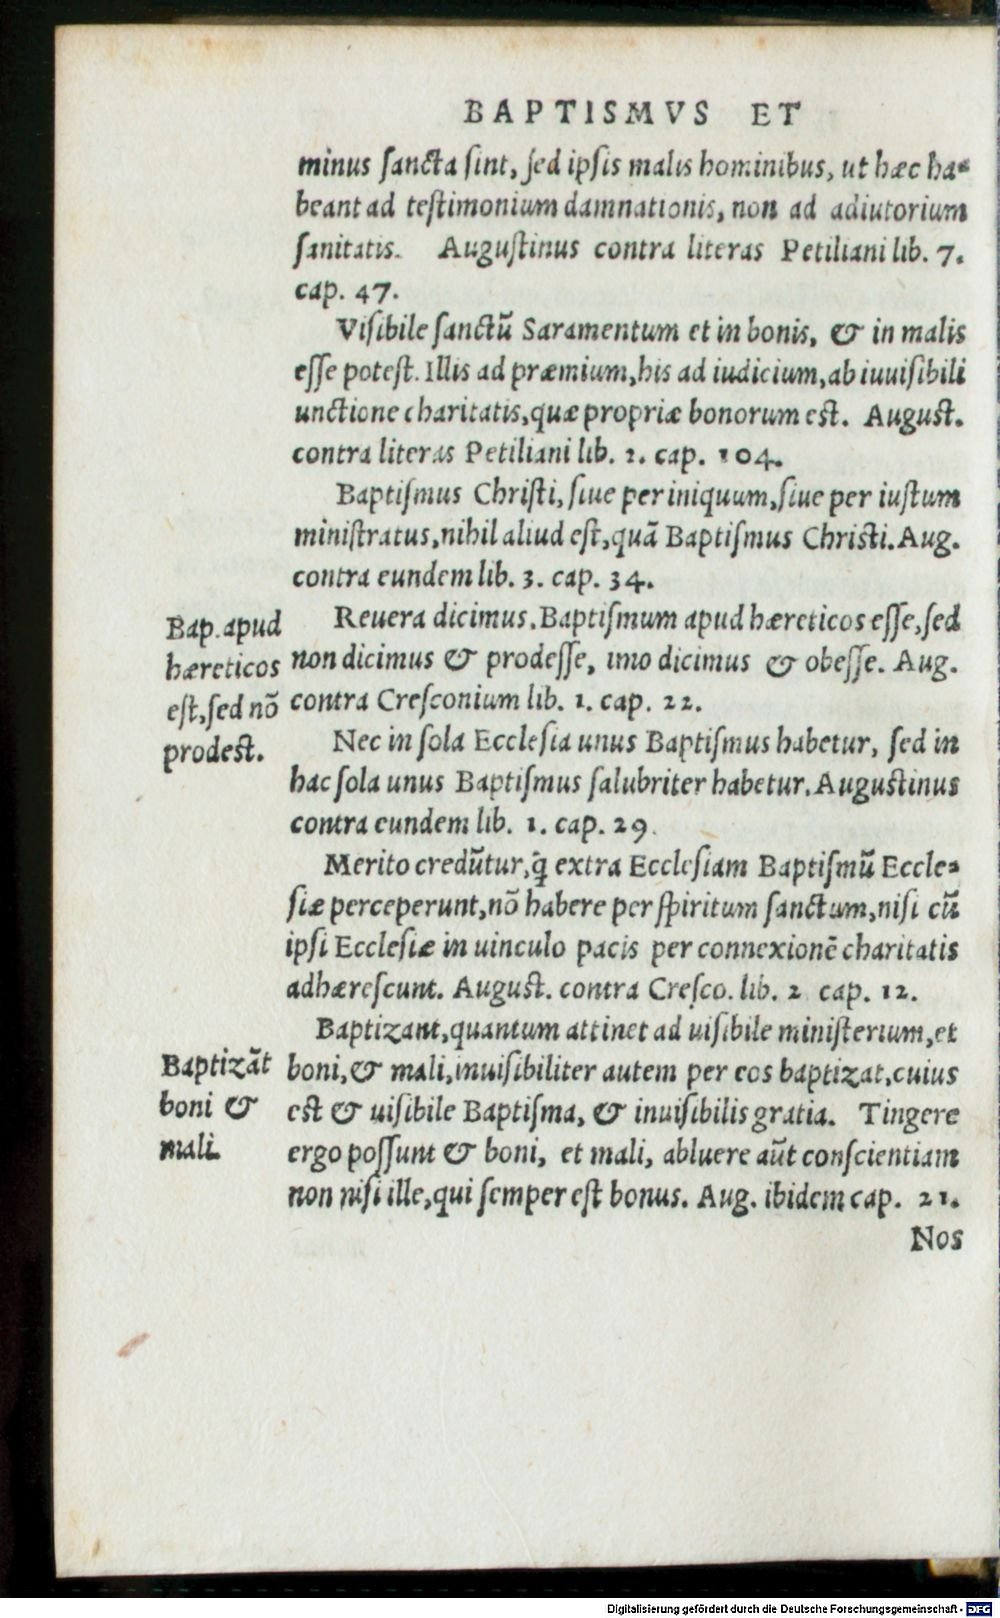 BAPTISMVS ET
minus ſancta ſint, ſed ipſis malis hominibus, ut hæc ha-
beant ad teſtimonium damnationis, non ad adiutorium
ſanitatis. Auguſtinus contra literas Petiliani lib. 7.
cap. 47.
Viſibile ſanctũ Saramentum et in bonis, & in malis
eſſe poteſt. Illis ad præmium, his ad iudicium, ab iuuiſibili
unctione charitatis, quæ propriæ bonorum est. Auguſt.
contra literas Petiliani lib. 2. cap. 104.
Baptiſmus Chriſti, ſiue per iniquum, ſiue per iuſtum
miniſtratus, nihil aliud eſt, quã Baptiſmus Chriſti. Aug.
contra eundem lib. 3. cap. 34.
Bap. apud
hæreticos
eſt, ſed nõ
prodeſt.
Reuera dicimus. Baptiſmum apud hæreticos eſſe, ſed
non dicimus & prodeſſe, imo dicimus & obeſſe. Aug.
contra Creſconium lib. 1. cap. 22.
Nec in ſola Eccleſia unus Baptiſmus habetur, ſed in
hac ſola unus Baptiſmus ſalubriter habetur. Auguſtinus
contra eundem lib. 1. cap. 29.
Merito credũtur, q̃ extra Eccleſiam Baptiſmũ Eccle-
ſiæ perceperunt, nõ habere per ſpiritum ſanctum, niſi cũ
ipſi Eccleſiæ in uinculo pacis per connexionẽ charitatis
adhæreſcunt. Auguſt. contra Creſco. lib. 2 cap. 12.
Baptizãt
boni &
mali.
Baptizant, quantum attinet ad uiſibile miniſterium, et
boni, & mali, inuiſibiliter autem per eos baptizat, cuius
eſt & uiſibile Baptiſma, & inuiſibilis gratia. Tingere
ergo poſſunt & boni, et mali, abluere aũt conſcientiam
non niſi ille, qui ſemper eſt bonus. Aug. ibidem cap. 21.
Nos
Digitalisierung gefördert durch die Deutsche Forschungsgemeinschaft - DFG